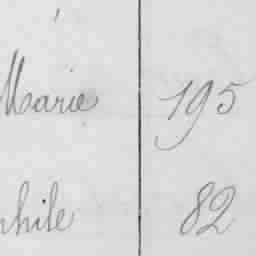 Marie 195
phile 82